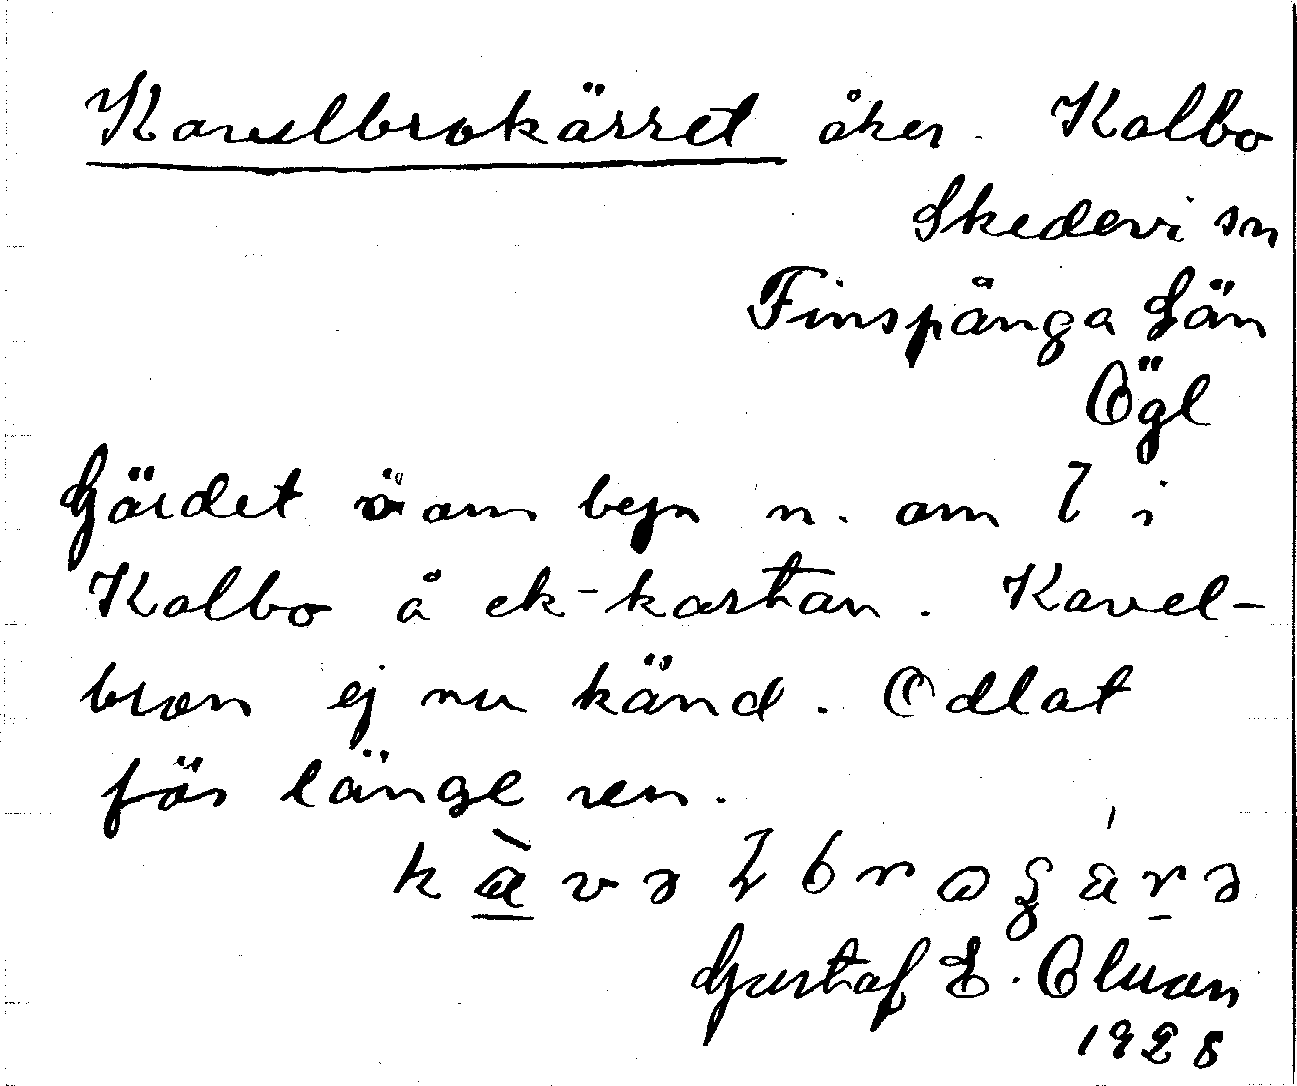 Kavelbrokärret åker. Kolbo
Skedevi sn
Finspånga Län
Ögl
Gärdet ö om byn n. om l i
Kolbo å ek-kartan. Kavel-
bron ej nu känd. Odlat
för länge sen.
Gustaf E.
1928